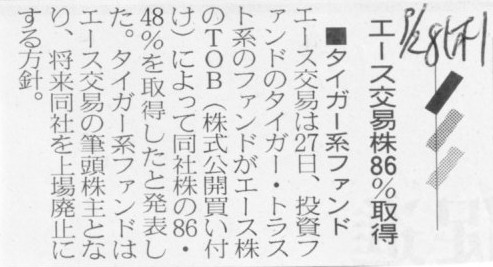 エース交易株86%取得
■タイガー系ファンド
エース交易は27日、投資フ
ァンドのタイガー・トラス
ト系のファンドがエース株
のTOB(株式公開買い付
け)によって同社株の86・
48%を取得したと発表し
た。タイガー系ファンドは
エース交易の筆頭株主とな
り、将来同社を上場廃止に
する方針。